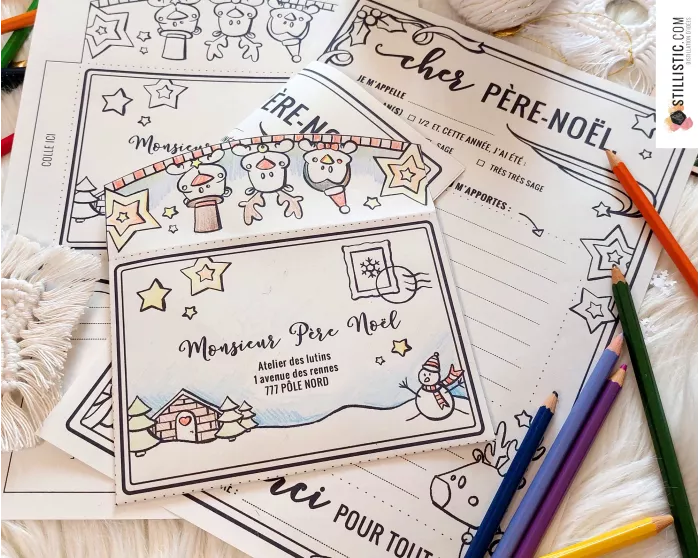 STILLISTIC.COM
DISTILLATION D'IDÉES
cher PÈRE-NOËL
JE M'APPELLE
AN(S) □ 1/2 ET, CETTE ANNÉE, J'AI ÉTÉ :
SAGE □ TRÈS TRÈS SAGE
M'APPORTES :
ÈRE-NO
COLLE ICI
Monsieur
Monsieur Père Noël
Atelier des lutins
1 avenue des rennes
777 PÔLE NORD
rci POUR TOUT